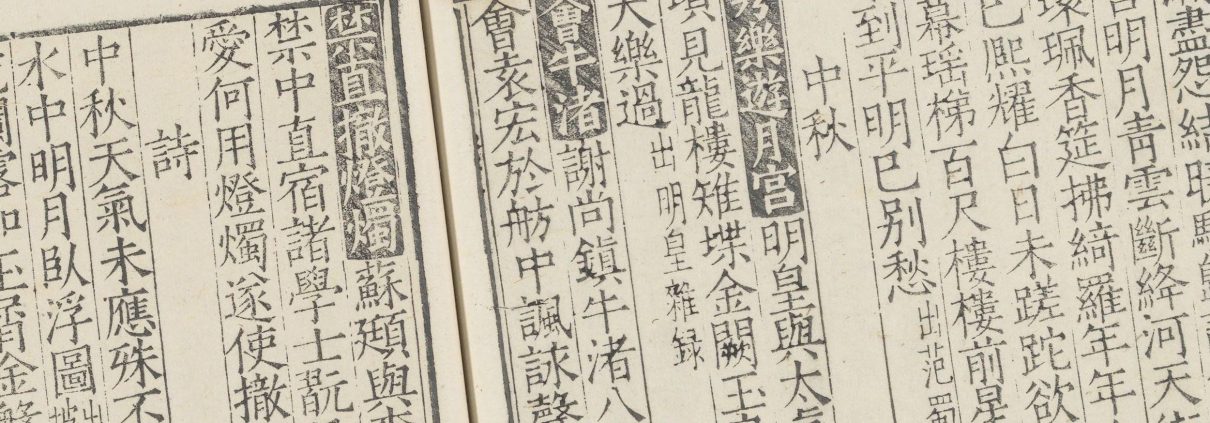 盡怨結
明月青雲斷絳河天
環珮香筵拂綺羅年年
已熙耀白日未蹉跎欲
幕瑶梯百尺樓樓前星
到平明已别愁出范蜀
中秋
樂遊月宫明皇與太
見龍樓雉堞金闕玉
天樂過出明皇雜録
會牛渚謝尚鎮牛渚八
會袁宏於舫中諷詠聲
禁直撤燈燭蘇頲與李
禁中直宿諸學士翫
愛何用燈燭遂使撤
詩
中秋天氣未應殊不
水中明月臥浮圖出坡